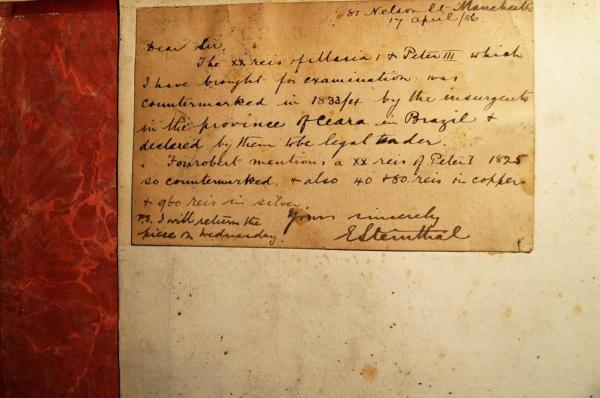 81 Nelson St Manchester
17 April /86.
Dear Sir,
The xx reis of Maria I & Peter III which
I have brought for examination was
countermarked in 1833/34 by the insurgents
in the province of Ceara in Brazil &
declared by them to be legal tender.
Fourobert mentions a xx reis of Peter I 1825
so countermarked, & also 40 & 80 reis in copper
& 960 reis in silver.
Yours sincerely
P.S. I will return the
piece on Wednesday.
ESternthal